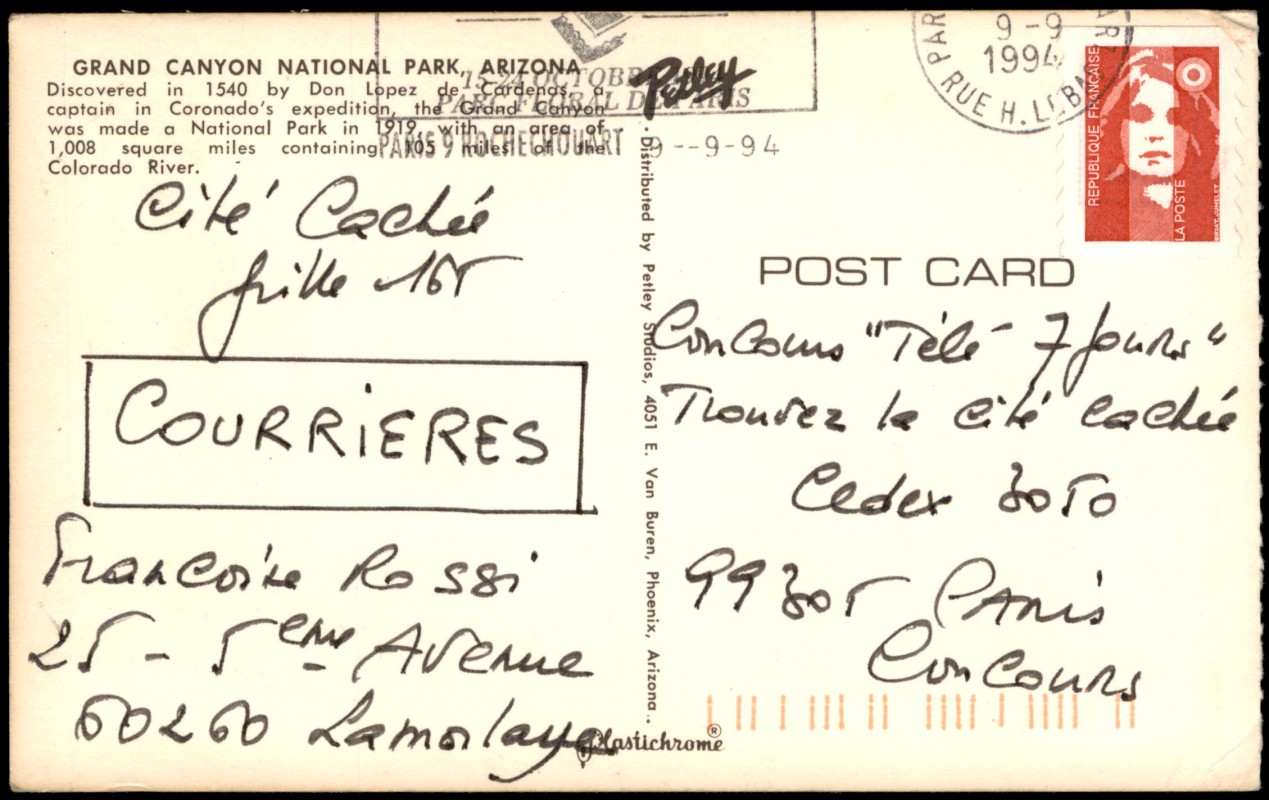 GRAND CANYON NATIONAL PARK, ARIZONA
Discovered in 1540 by Don Lopez de Cardenas, a
captain in Coronado's expedition, the Grand Canyon
was made a National Park in 1919, with an area of
1,008 square miles containing 105 miles of the
Colorado River.
15-24 OCTOBRE
PARC FLORAL DE PARIS
PARIS 9 ROCHECHOUART 9--9-94
Petley
9-9
1994
PARIS
RUE H. LEBAS
REPUBLIQUE FRANÇAISE
LA POSTE
BRIAT-JUMELET
Cité Cachée
grille 165
COURRIERES
Francoise Rossi
25 - 5eme Avenue
60260 Lamorlaye
Distributed by Petley Studios, 4051 E. Van Buren, Phoenix, Arizona
Plastichrome®
POST CARD
Concours "Télé 7 Jours"
Trouvez la cité cachée
Cedex 3050
99305 Paris
Concours